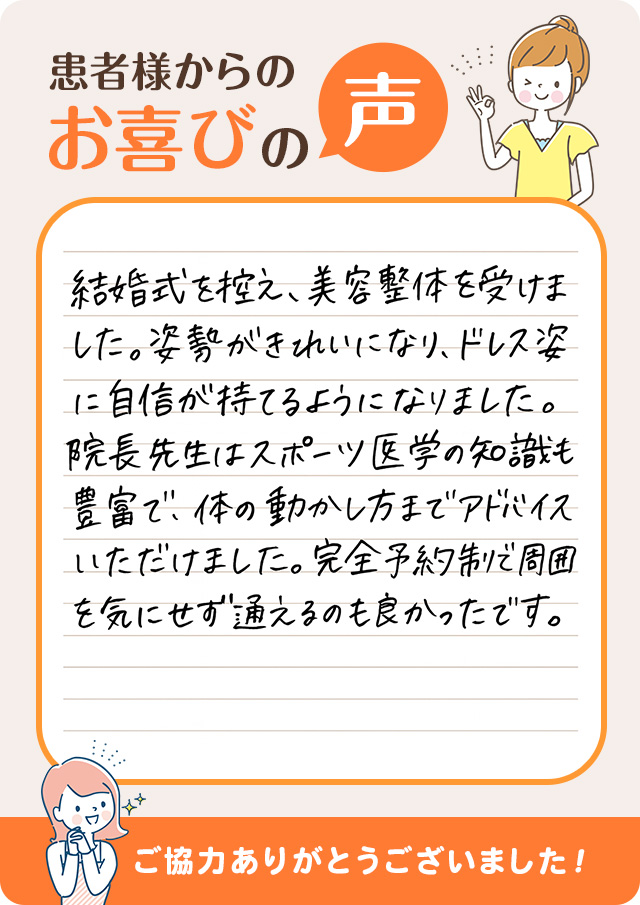 患者様からの
お喜びの声
結婚式を控え、美容整体を受けま
した。姿勢がきれいになり、ドレス姿
に自信が持てるようになりました。
院長先生はスポーツ医学の知識も
豊富で、体の動かし方までアドバイス
いただけました。完全予約制で周囲
を気にせず通えるのも良かったです。
ご協力ありがとうございました！